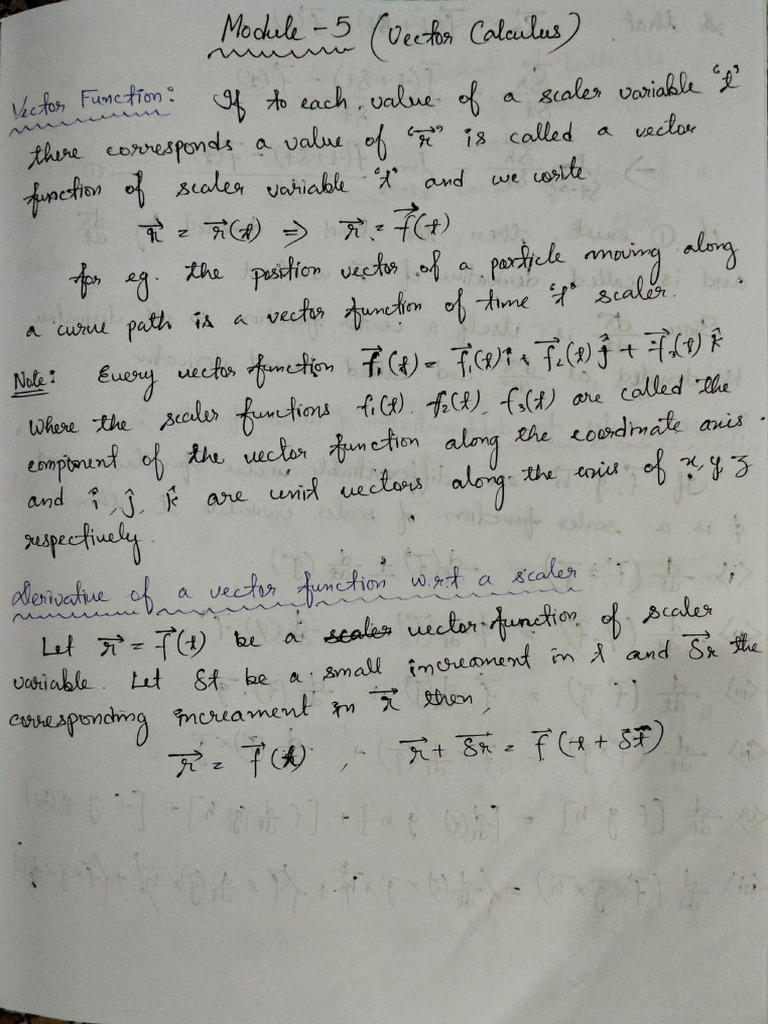 Module - 5 (Vector Calculus)
Vector Function: If to each value of a scaler variable "t"
there corresponds a value of "r⃗" is called a vector
function of scaler variable "t" and we write
r⃗ = r⃗(t) ⇒ r⃗ = f⃗(t)
for eg. the position vector of a particle moving along
a curve path is a vector function of time "t" scaler.
Note: Every vector function f⃗₁(t) = f⃗₁(t) î + f⃗₂(t) ĵ + f⃗₃(t) k̂
where the scaler functions f₁(t), f₂(t), f₃(t) are called the
component of the vector function along the coordinate axis.
and î, ĵ, k̂ are unit vectors along the axis of x, y, z
respectively.
Derivative of a vector function w.r.t a scaler
Let r⃗ = f⃗(t) be a vector function of scaler
variable. Let δt be a small increament in t and δr⃗ the
corresponding increament in r⃗ then,
r⃗ = f⃗(t) , r⃗ + δr⃗ = f⃗(t + δt)